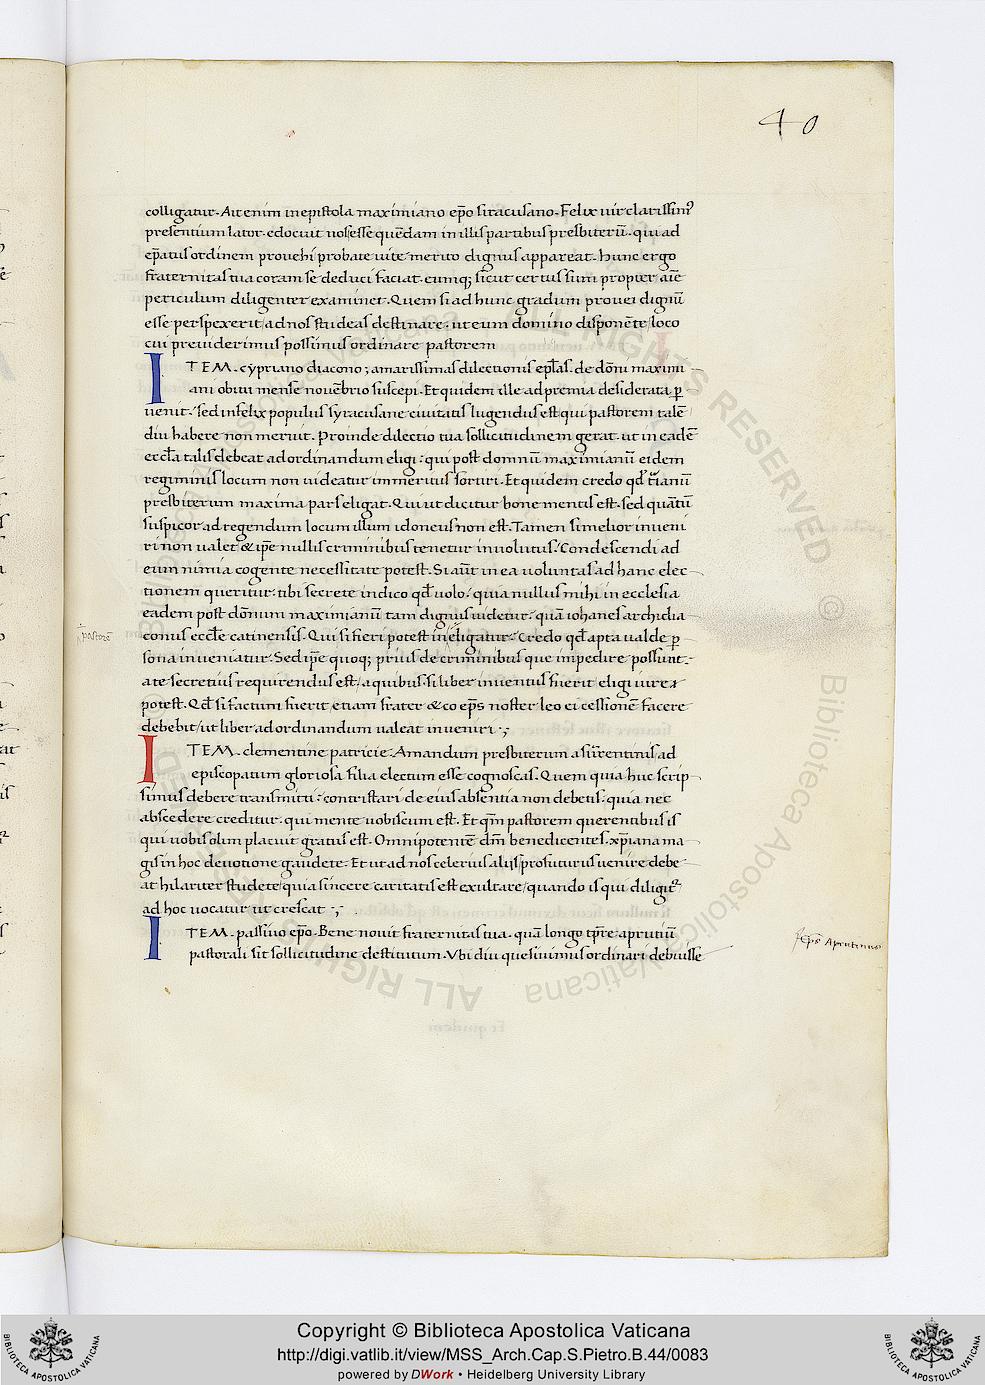 40
colligatur. Ait enim in epistola maximiano ep̄o siracusano. Felix uir clarissim᾿
presentium lator. edocuit nos esse quēdam in illis partibus presbiterū. qui ad
ep̄atus ordinem prouehi probate uite merito dignus appareat. hunc ergo
fraternitas tua coram se deduci faciat. eumq; sicut certus sum propter aīe
periculum diligenter examinet. Quem si ad hunc gradum prouei dignū
esse perspexerit/ ad nos studeas destinare. ut eum domino disponēte/ loco
cui preuiderimus possimus ordinare pastorem
ITEM. cypriano diacono; amarissimas dilectionis ep̄las. de dōni maximi
ani obitu mense nouēbrio suscepi. Et quidem ille ad premia desiderata p̲
uenit. sed infelix populus syracusane ciuitatis lugendus est qui pastorem talē
diu habere non meruit. Proinde dilectio tua sollicitudinem gerat. ut in eadē
eccl̄a talis debeat ad ordinandum eligi: qui post domnū maximianū eidem
regiminis locum non uideatur immeritus sortiri. Et quidem credo qd̄ t̄ianū
presbiterum maxima pars eligat. Qui ut dicitur bone mentis est. sed quātū
suspicor ad regendum locum illum idoneus non est. Tamen si melior inueni
ri non ualet & ip̄e nullis criminibus tenetur inuolutus: Condescendi ad
eum nimia cogente necessitate potest. Si aūt in ea uoluntas ad hanc elec-
tionem queritur: tibi secrete indico qd̄ uolo: quia nullus mihi in ecclesia
eadem post dōnum maximianū tam dignus uidetur: quā iohanes archidia
conus eccl̄e catinensis. Qui si fieri potest ut eligatur: Credo qd̄ apta ualde p̲
pastorē
sona inueniatur. Sed ip̄e quoq; prius de criminibus que inpedire possunt.
a te secretius requirendus est/ a quibus si liber inuentus fuerit eligi iure
potest. Qd̄ si factum fuerit, etiam frater & coep̄s noster leo ei cessionē facere
debebit/ ut liber ad ordinandum ualeat inueniri:;
ITEM. clementine patricie. Amandum presbiterum a surrentinis ad
episcopatum gloriosa filia electum esse cognoscas. Quem quia huc scrip-
simus debere transmitti: contristari de eius absentia non debetis. quia nec
abscedere creditur: qui mente uobiscum est. Et qm̄ pastorem querentibus is
qui uobis olim placuit gratus est. Omnipotentē dm̄ benedicentes. xp̄iana ma
gis in hoc deuotione gaudete. Et ut ad nos celerius alijs profuturus uenire debe-
at hilariter studete/ quia sincere caritatis est exultare/ quando is qui diligit᾿
ad hoc uocatur ut crescat:;
ITEM. passiuo ep̄o. Bene nouit fraternitas tua. quā longo tp̄re. aprutiū
ep̄s Aprutinus
pastorali sit sollicitudine destitutum. Vbi diu quesiuimus ordinari debuisse
ALL RIGHTS RESERVED © Biblioteca Apostolica Vaticana
Copyright © Biblioteca Apostolica Vaticana
http://digi.vatlib.it/view/MSS_Arch.Cap.S.Pietro.B.44/0083
powered by DWork • Heidelberg University Library
BIBLIOTECA APOSTOLICA VATICANA
BIBLIOTECA APOSTOLICA VATICANA